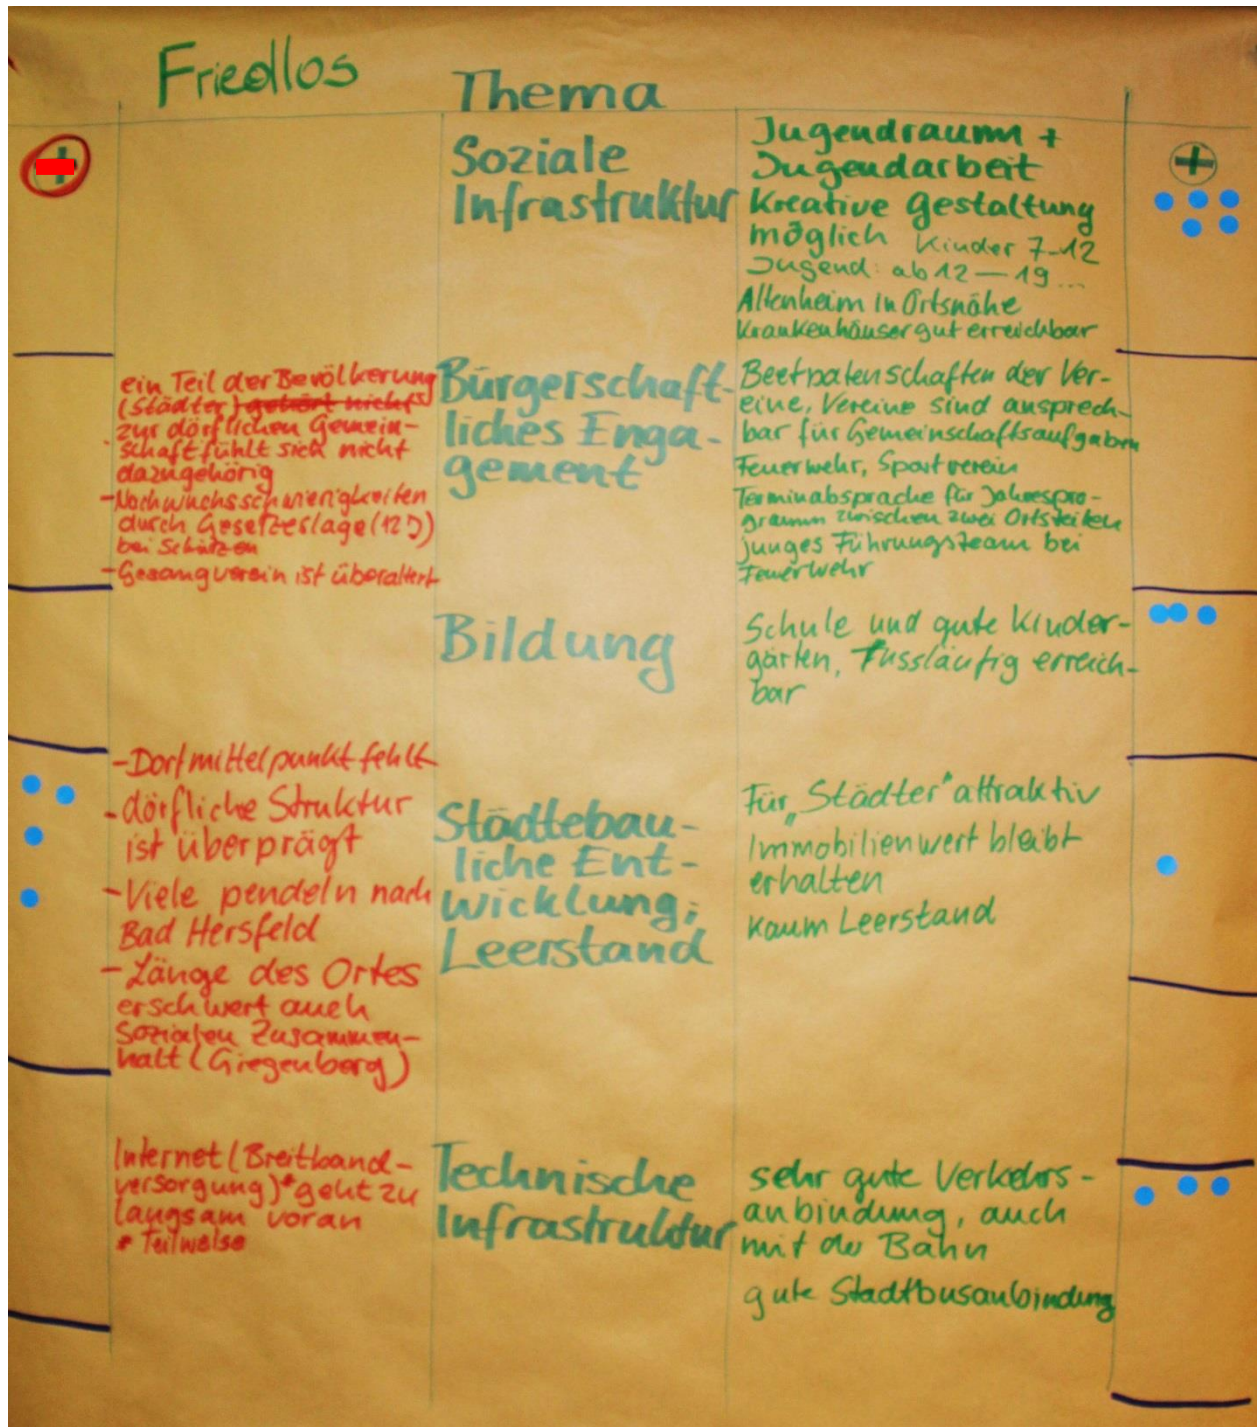 Friedlos
Thema
Soziale
Infrastruktur
Jugendraum +
Jugendarbeit
Kreative Gestaltung
möglich Kinder 7-12
Jugend: ab 12 — 19 ...
Altenheim in Ortsnähe
Krankenhäuser gut erreichbar
ein Teil der Bevölkerung
(Städter) gehört nicht
zur dörflichen Gemein-
schaft fühlt sich nicht
dazugehörig
- Nachwuchsschwierigkeiten
durch Gesetzeslage (12 J)
bei Schützen
- Gesangverein ist überaltert
Bürgerschaft-
liches Enga-
gement
Beetpatenschaften der Ver-
eine, Vereine sind ansprech-
bar für Gemeinschaftsaufgaben
Feuerwehr, Sportverein
Terminabsprache für Jahrespro-
gramm zwischen zwei Ortsteilen
junges Führungsteam bei
Feuerwehr
Bildung
Schule und gute Kinder-
gärten, Fussläufig erreich-
bar
- Dorfmittelpunkt fehlt
- dörfliche Struktur
ist überprägt
- Viele pendeln nach
Bad Hersfeld
- Länge des Ortes
erschwert auch
Sozialen Zusammen-
halt (Giegenberg)
Städtebau-
liche Ent-
wicklung;
Leerstand
Für „Städter" attraktiv
Immobilienwert bleibt
erhalten
Kaum Leerstand
Internet (Breitband-
versorgung)* geht zu
langsam voran
* Teilweise
Technische
Infrastruktur
sehr gute Verkehrs-
anbindung, auch
mit der Bahn
gute Stadtbusanbindung